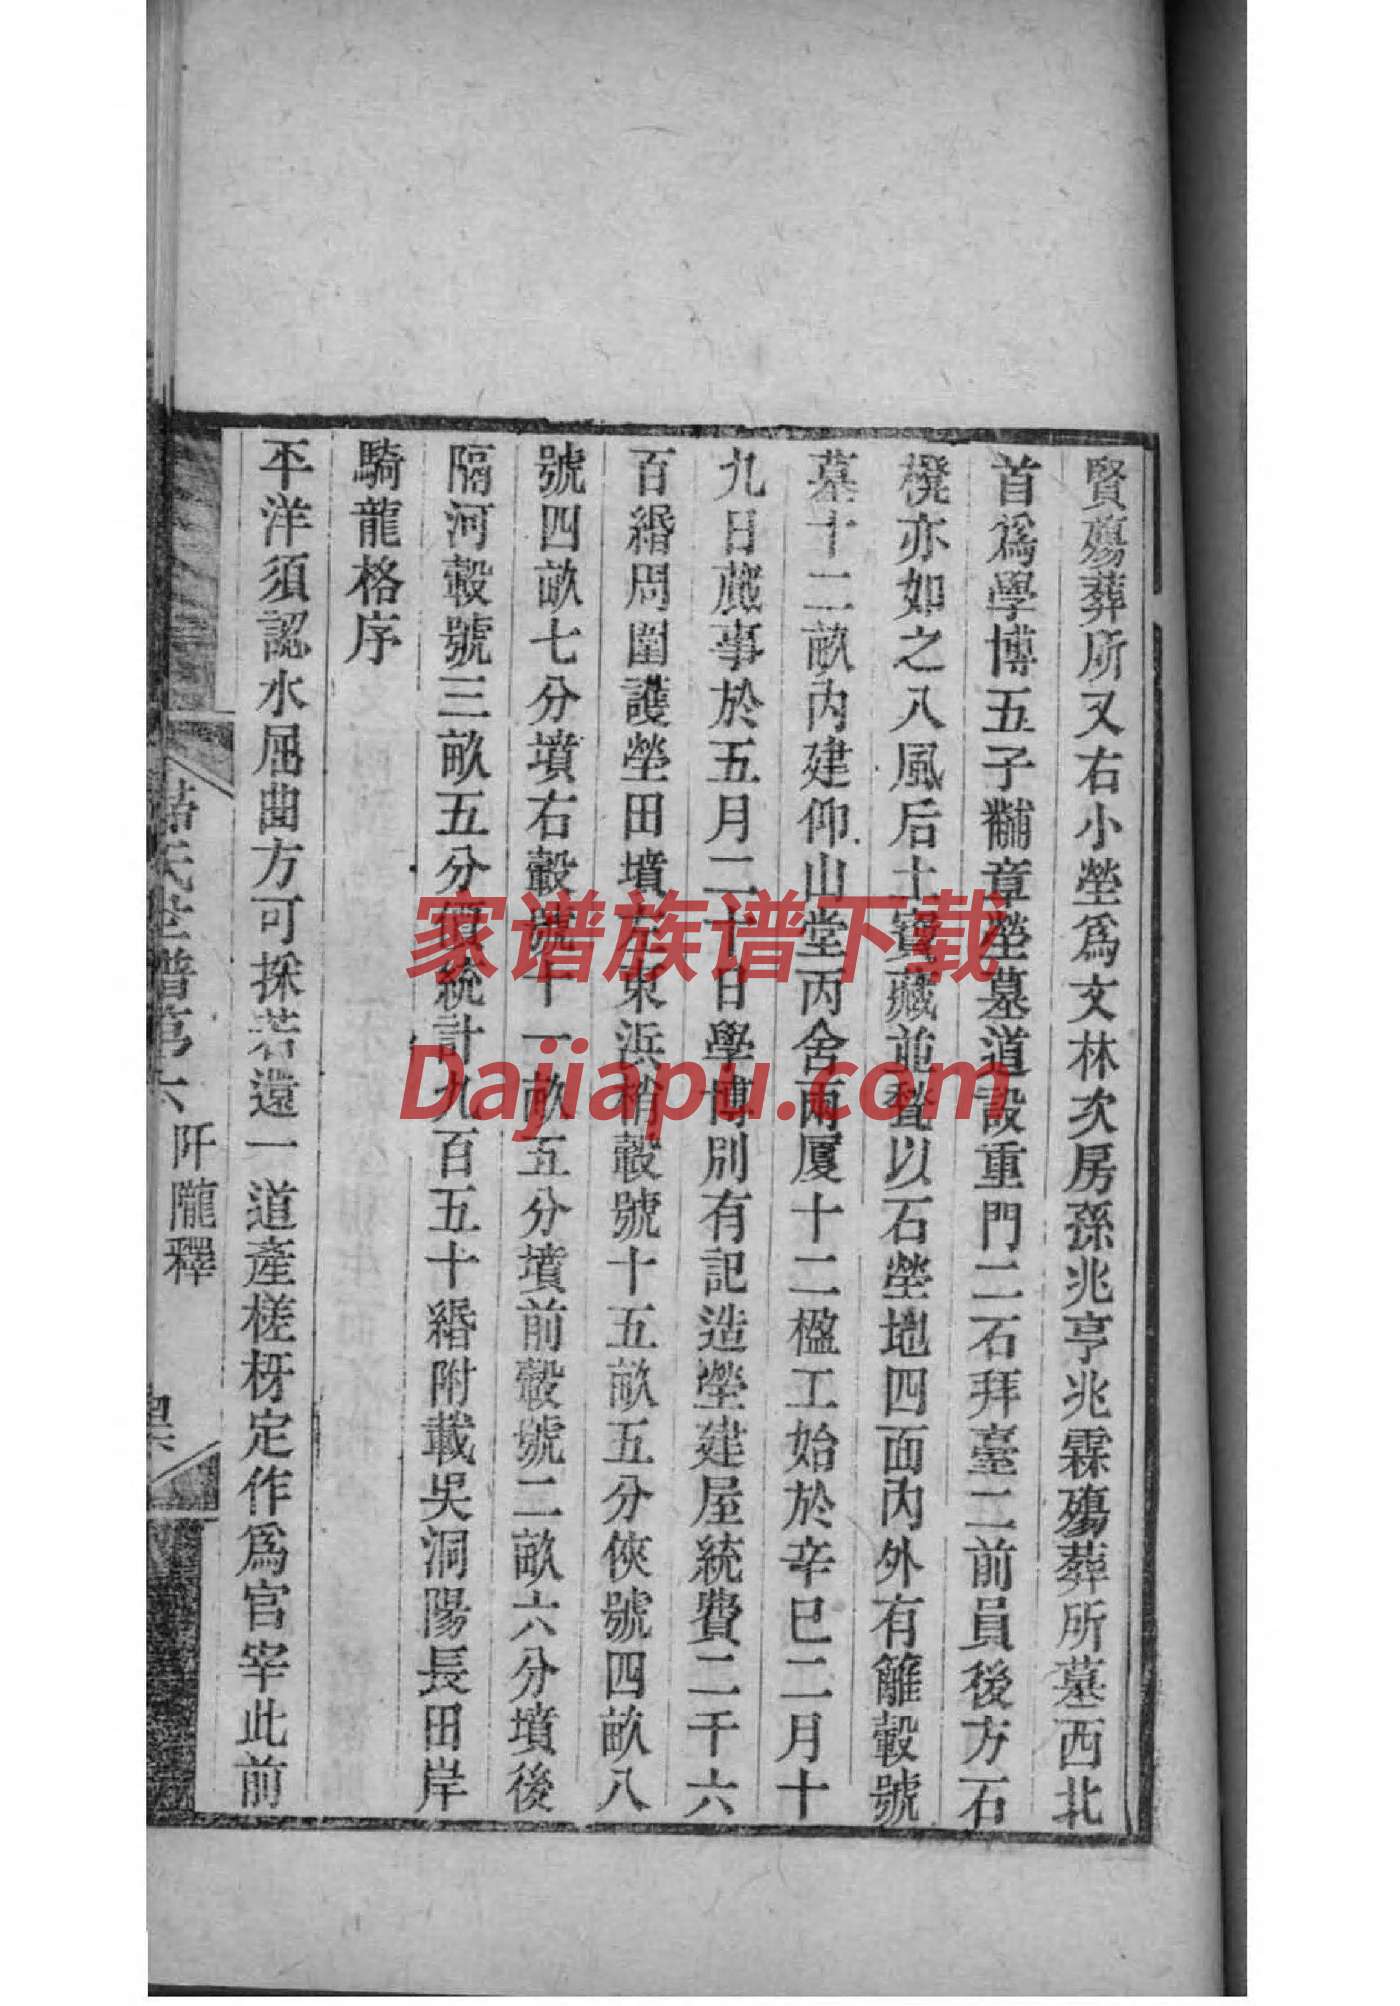 賢殤葬所又右小塋爲文林次房孫兆亨兆霖殤葬所墓西北
首爲學博五子黼章塋墓道設重門二石拜臺二前員後方石
櫈亦如之八風后土寶藏並甃以石塋地四面內外有籬轂號
墓十二畝內建仰山堂丙舍兩廈十二楹工始於辛巳二月十
九日蕆事於五月二十日學博別有記造塋建屋統費二千六
百緡周圍護塋田墳左東浜梢轂號十五畝五分俠號四畝八
號四畝七分墳右轂號十一畝五分墳前轂號二畝六分墳後
隔河轂號三畝五分須統計九百五十緡附載吳洞陽長田岸
騎龍格序
平洋須認水屈曲方可採若還一道產槎枒定作爲官宰此前
氏世譜第六 阡隴釋
家谱族谱下载
Dajiapu.com